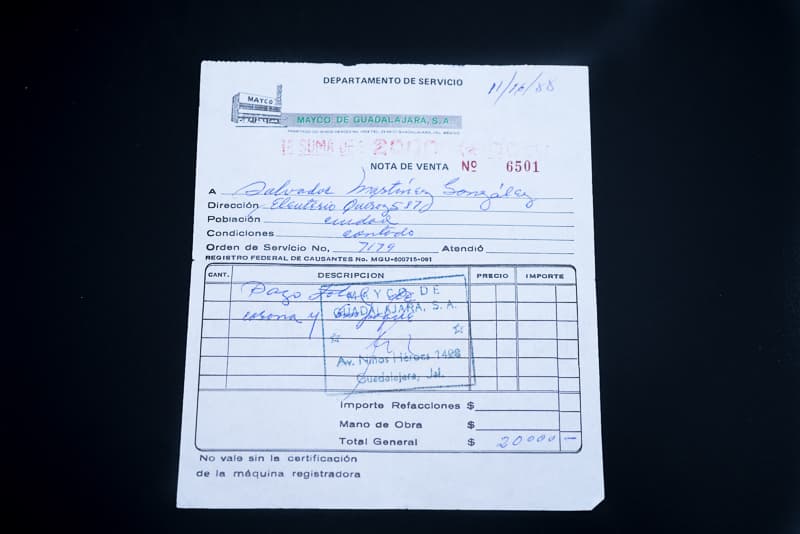 DEPARTAMENTO DE SERVICIO
MAYCO
MAYCO DE GUADALAJARA, S.A.
LA SUMA DE
NOTA DE VENTA Nº 6501
A Salvador Martínez González
Dirección Eleuterio Quiroz 587
Población ciudad
Condiciones contado
Orden de Servicio No, 7179 Atendió
REGISTRO FEDERAL DE CAUSANTES No. MGU-600715-091
CANT. DESCRIPCION PRECIO IMPORTE
Pago total de
corona y
MAYCO DE
GUADALAJARA, S. A.
Av. Niños Héroes 1498
Guadalajara, Jal.
Importe Refacciones $
Mano de Obra $
Total General $ 20000 —
No vale sin la certificación
de la máquina registradora